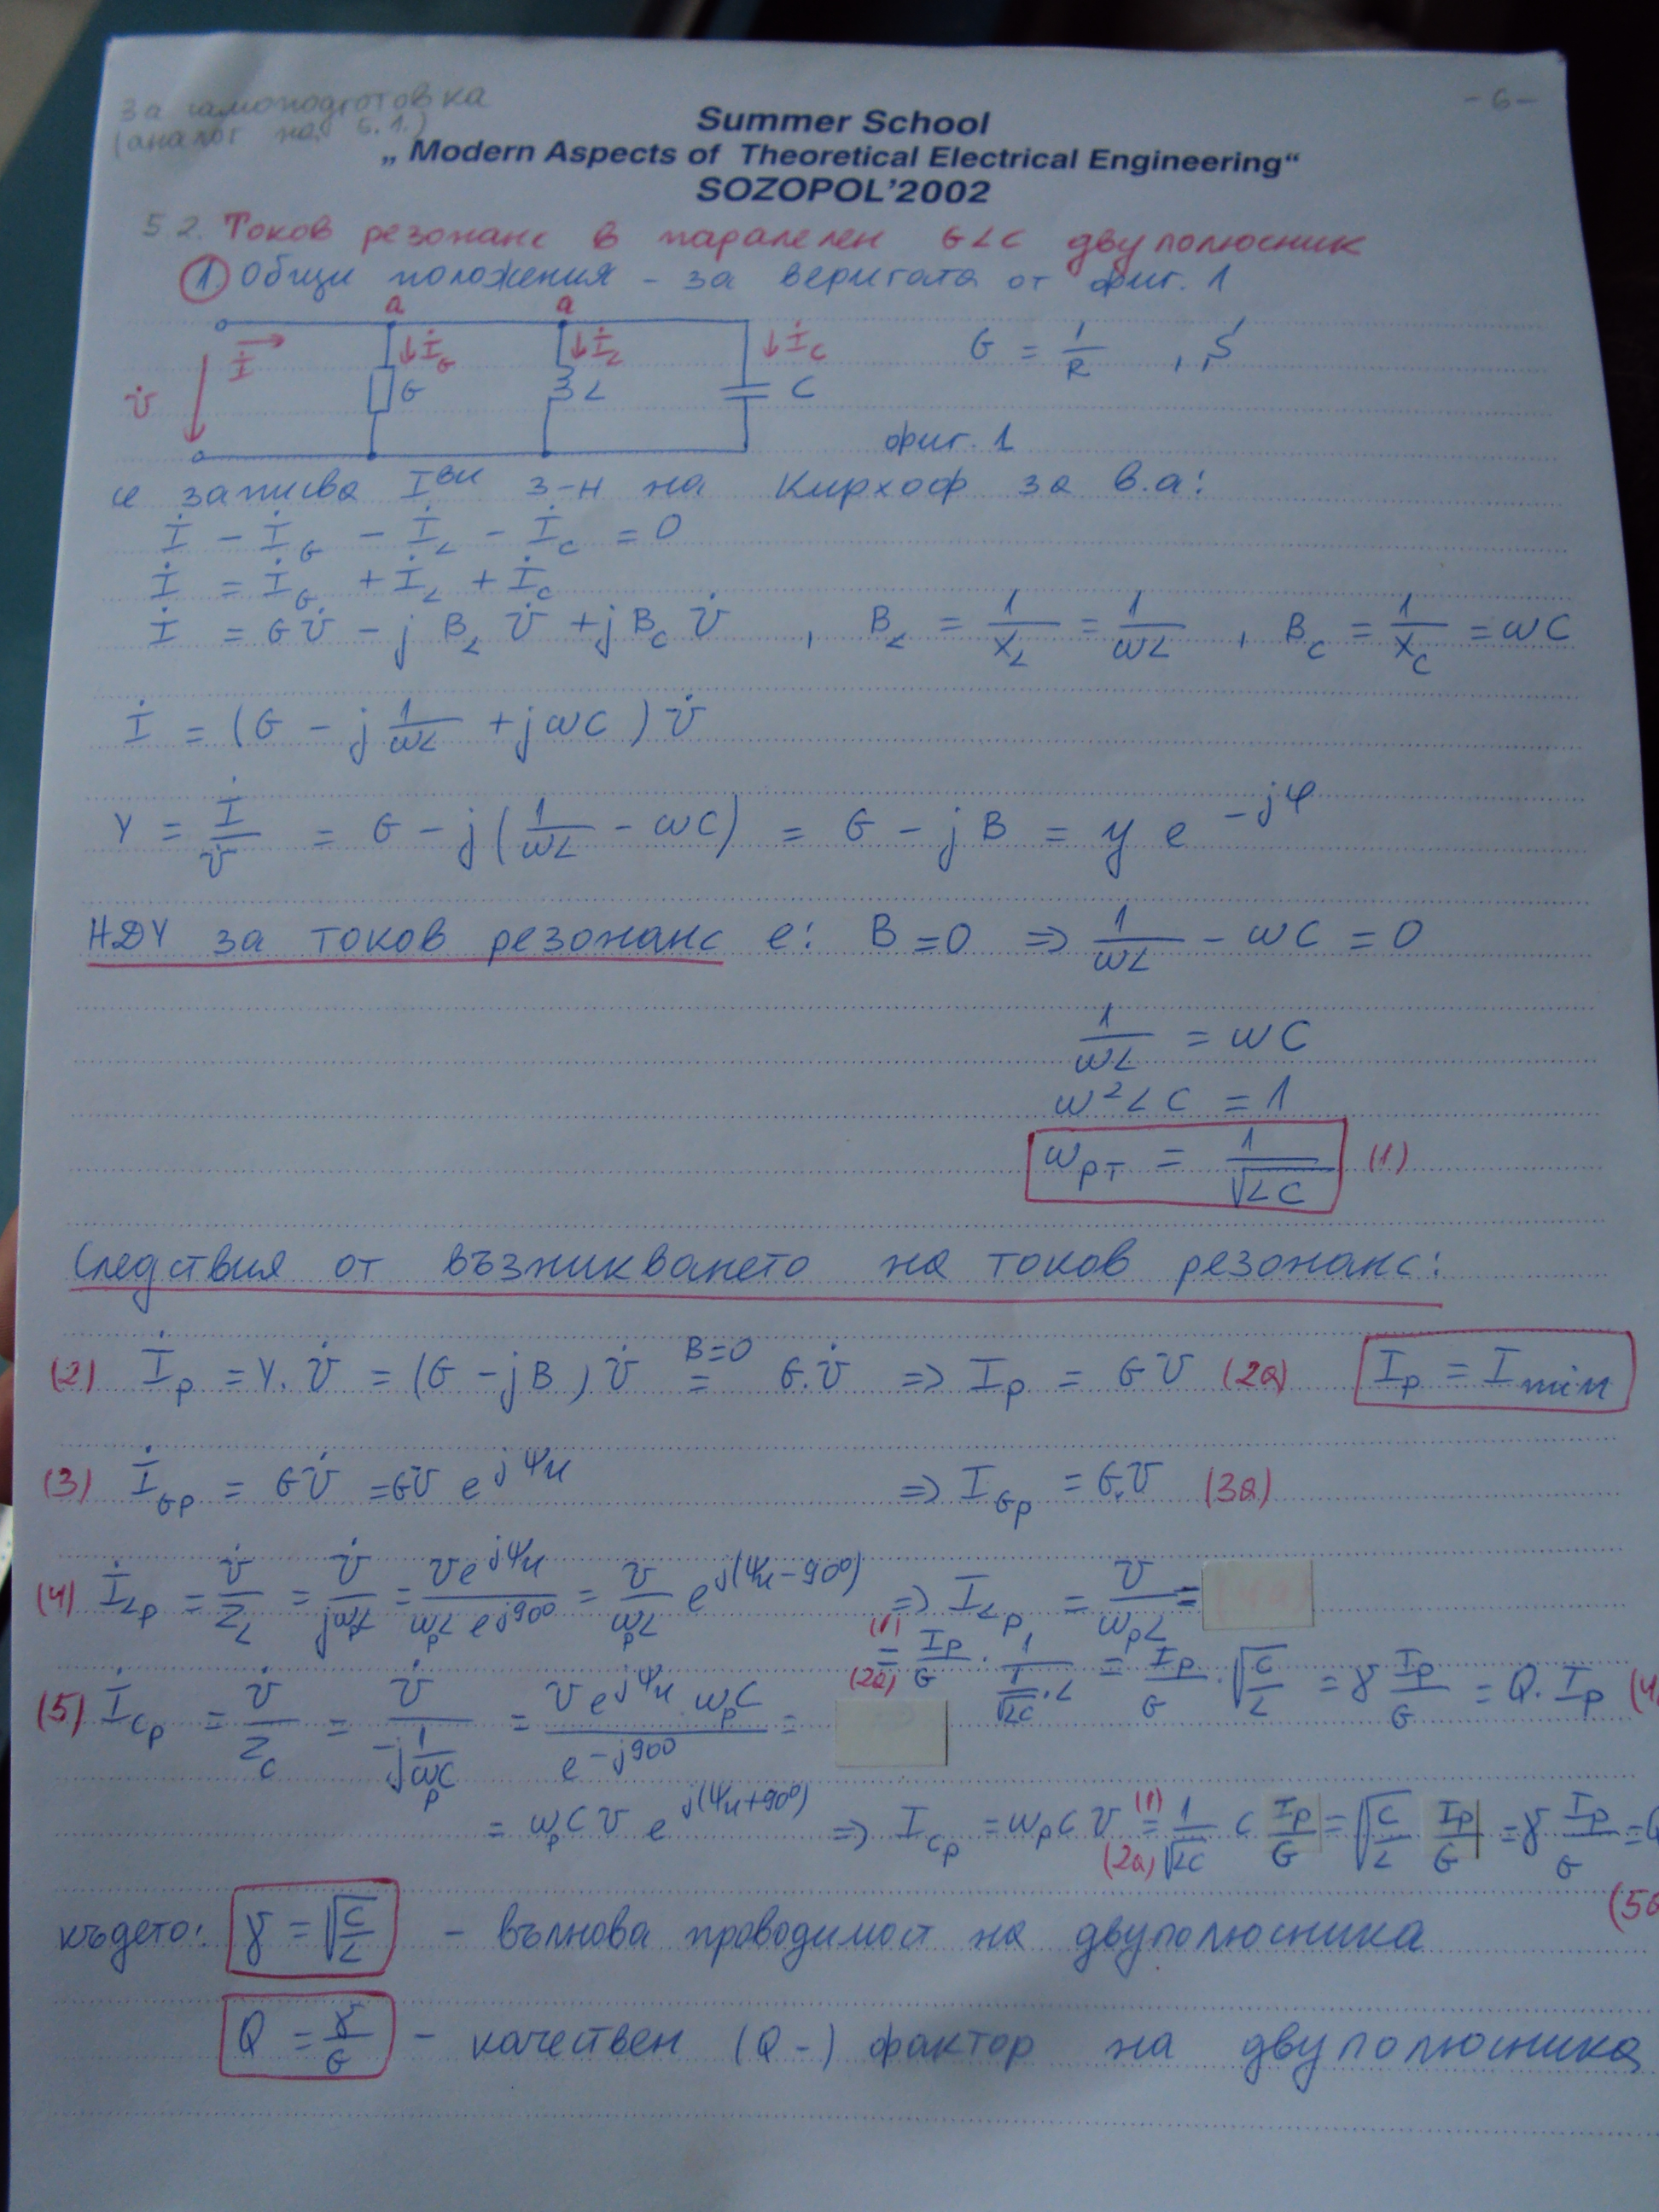 За самоподготовка
(аналог на 5.1.)
- 6 -
Summer School
„ Modern Aspects of Theoretical Electrical Engineering“
SOZOPOL’2002
5.2. Токов резонанс в паралелен GLC двуполюсник
1. Общи положения - за веригата от фиг. 1
a a
İ İ_G İ_L İ_C G = 1/R , S
U̇ G L C
фиг. 1
се записва I^ви з-н на Кирхоф за в.а:
İ - İ_G - İ_L - İ_C = 0
İ = İ_G + İ_L + İ_C
İ = GU̇ - j B_L U̇ + j B_C U̇ , B_L = 1/X_L = 1/ωL , B_C = 1/X_C = ωC
İ = (G - j 1/ωL + jωC) U̇
Y = İ/U̇ = G - j(1/ωL - ωC) = G - jB = y e^-jφ
НДУ за токов резонанс е: B = 0 ⇒ 1/ωL - ωC = 0
1/ωL = ωC
ω²LC = 1
ω_рт = 1/√LC (1)
Следствия от възникването на токов резонанс:
(2) İ_p = Y.U̇ = (G - jB) U̇ =^(B=0) G.U̇ ⇒ I_p = GU (2a) I_p = I_min
(3) İ_Gp = GU̇ = GU e^jψu ⇒ I_Gp = G.U (3a)
(4) İ_Lp = U̇/Z_L = U̇/jω_pL = U e^jψu / ω_pL e^j90° = U/ω_pL e^j(ψu-90°) ⇒ I_Lp = U/ω_pL =
(1) = (2a) I_p/G . 1/(1/√LC . L) = I_p/G . √(C/L) = γ I_p/G = Q. I_p (4
(5) İ_Cp = U̇/Z_C = U̇/(-j 1/ω_pC) = U e^jψu ω_pC / e^-j90° =
= ω_pC U e^j(ψu+90°) ⇒ I_Cp = ω_pC U (1) = (2a) 1/√LC C I_p/G = √(C/L) I_p/G = γ I_p/G = Q
(5a
където: γ = √(C/L) - вълнова проводимост на двуполюсника
Q = γ/G - качествен (Q -) фактор на двуполюсника